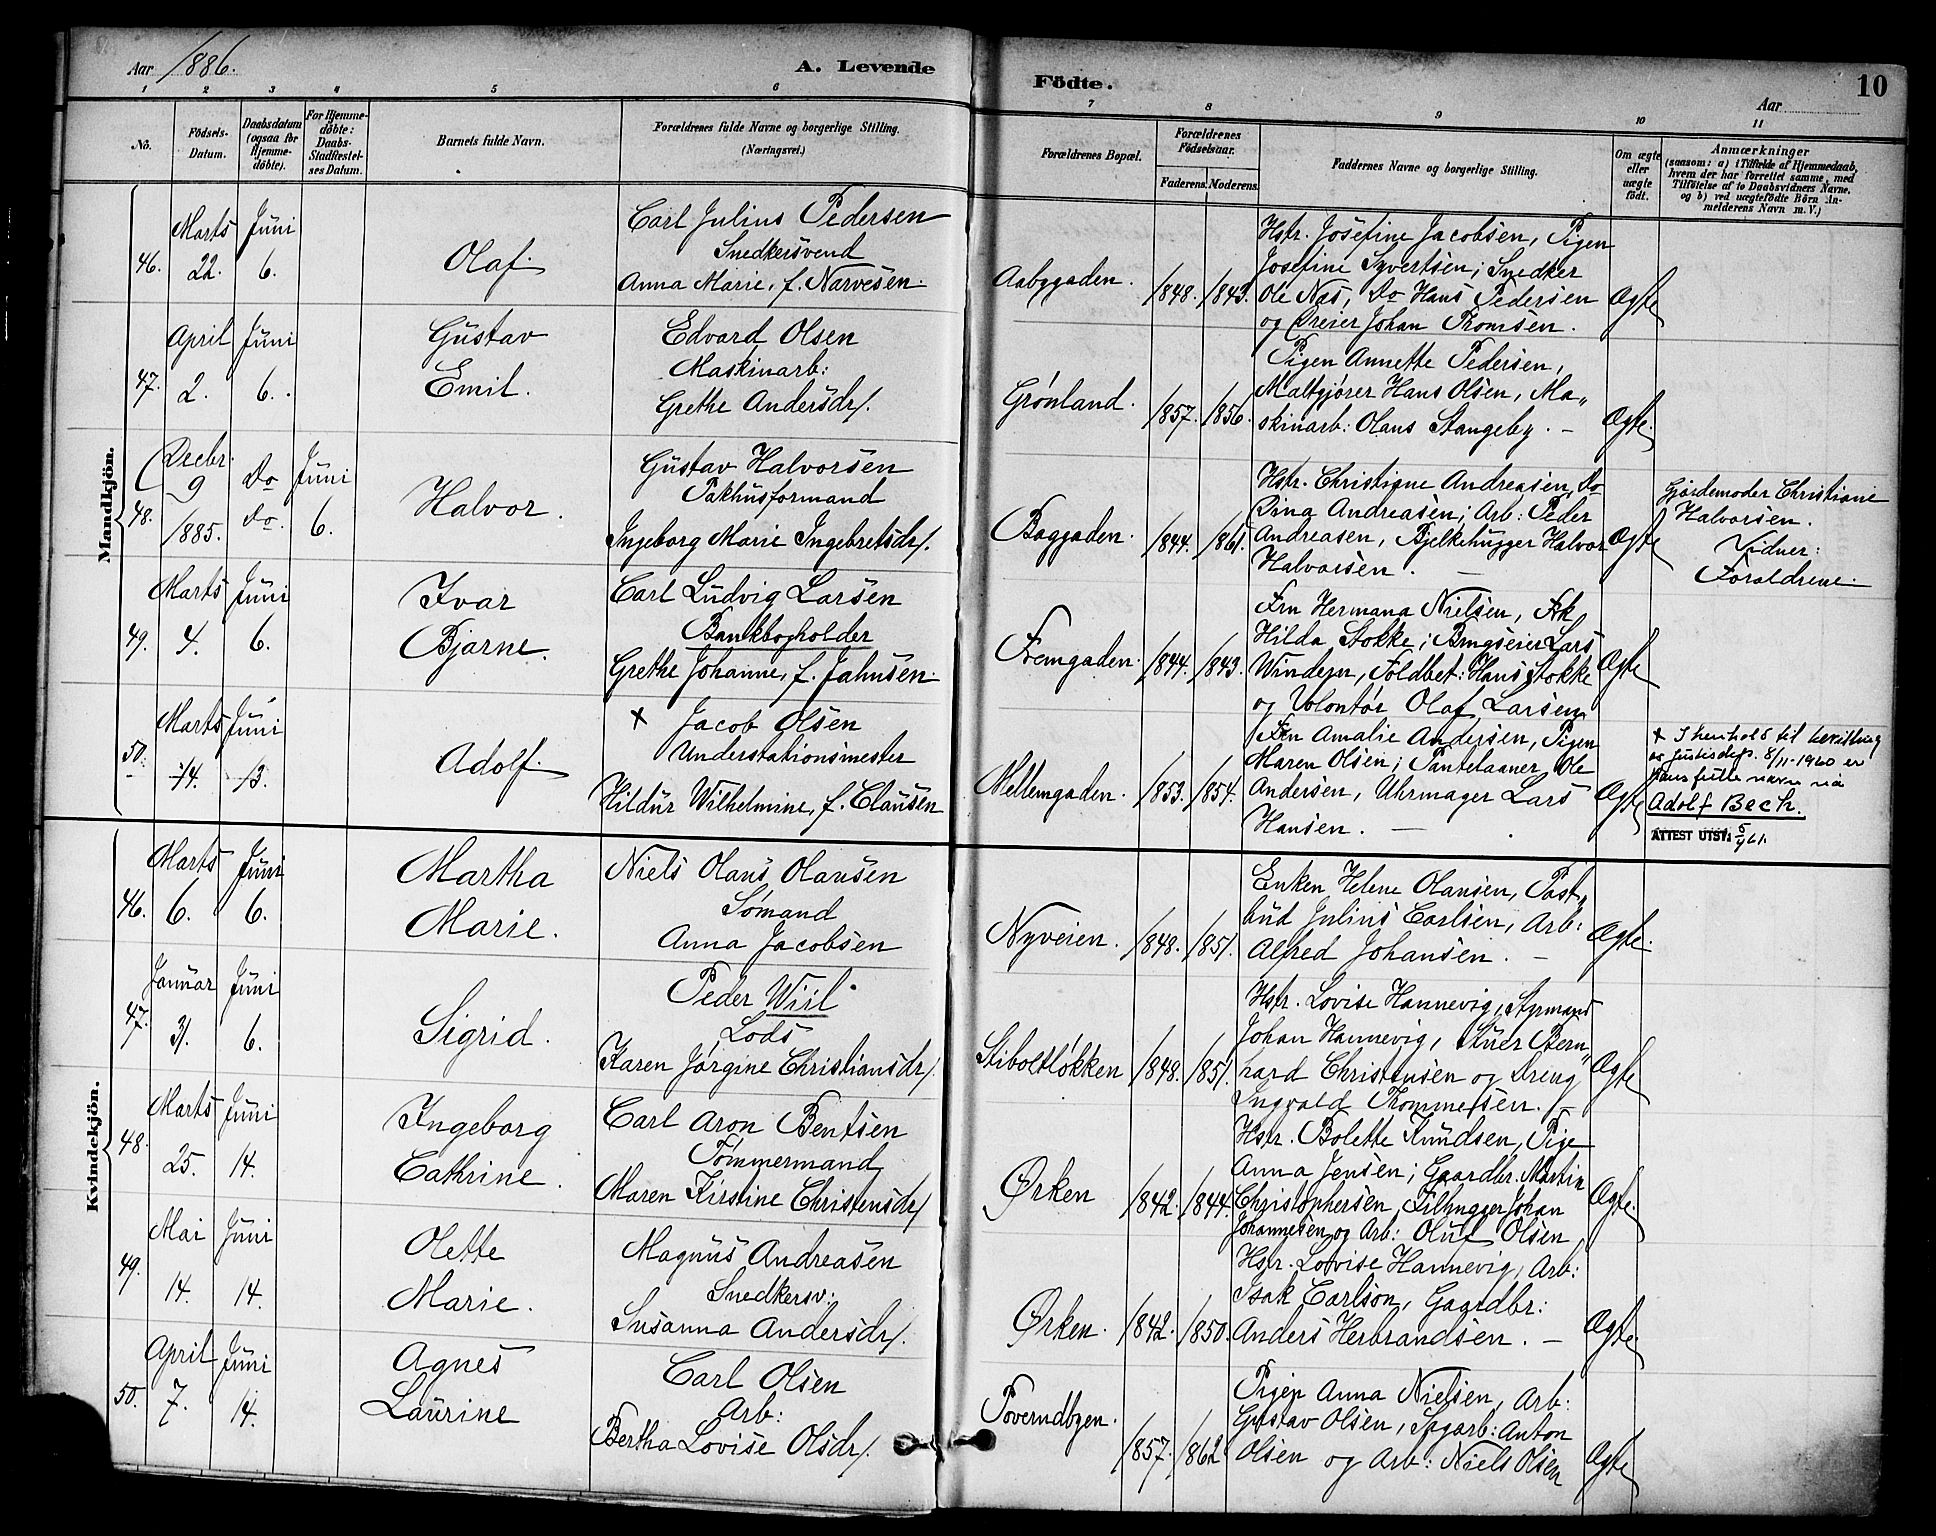 Aar 1886.
A. Levende
Födte.
Aar
10
1
2
3
4
5
6
7
8
9
10
11
No.
Födsels-
Datum.
Daabsdatum
(ogsaa for
Hjemme-
döbte).
For Hjemme-
döbte:
Daabs-
Stadfæstel-
ses Datum.
Barnets fulde Navn.
Forældrenes fulde Navne og borgerlige Stilling.
(Næringsvei.)
Forældrenes Bopæl.
Forældrenes
Födselsaar.
Faderens.
Moderens.
Faddernes Navne og borgerlige Stilling.
Om ægte
eller
uægte
födt.
Anmærkninger
(saasom: a) i Tilfælde af Hjemmedaab,
hvem der har forrettet samme, med
Tilföielse af to Daabsvidners Navne.
og b) ved uægtefödte Börn An-
melderens Navn m. V.)
Mandkjön.
46.
Marts
22.
Juni
6.
Olaf.
Carl Julius Pedersen
Snedkersvend
Anna Marie, f. Narvesen.
Aabygaden.
1848.
1843.
Hstr. Josefine Jacobsen, Pigen
Josefine Syvertsen; Snedker
Ole Næs, Do Hans Pedersen
og Dreier Johan Thomsen.
Ægte
47.
April
2.
Juni
6.
Gustav
Emil.
Edvard Olsen
Maskinarb:
Grethe Andersdr.
Grønland.
1857.
1856.
Pigen Annette Pedersen,
Maltgjører Hans Olsen, Ma„
skinarb: Olaus Stangeby. —
Ægte.
48.
Decbr.
9
1885.
Do
Do.
Juni
6.
Halvor.
Gustav Halvorsen
Pakhusformand
Ingeborg Marie Ingebretsdr.
Baggaden.
1844.
1861.
Hstr. Christiane Andreasen, Do
Pina Andreasen; Arb: Peder
Andreasen, Bjelkehugger Halvor
Halvorsen. —
Ægte
Gjordemoder Christiane
Halvorsen.
Vidner:
Forældrene.
49.
Marts
4.
Juni
6.
Ivar
Bjarne.
Carl Ludvig Larsen
Bankbogholder
Grethe Johanne, f. Jahnsen.
Fremgaden.
1844.
1843.
Fru Hermana Nielsen, Frk
Hilda Stokke; Brugseier Lars
Windern, Toldbet: Hans Stokke
og Volontør Olaf Larsen
Ægte
50.
Marts
14.
Juni
13.
Adolf.
x Jacob Olsen
Understationsmester
Hildur Wilhelmine, f. Clausen
Mellemgaden.
1853.
1854.
Fru Amalie Andersen, Pigen
Maren Olsen; Pantelaaner Ole
Andersen, Uhrmager Lars
Hansen. —
Ægte
x I henhold til bevilling
av Justisdep. 8/11-1960 er
hans fulle navn nå
Adolf Bech.
ATTEST UTST. 5/4 61.
Kvindekjön.
46.
Marts
6.
Juni
6.
Martha
Marie.
Niels Olaus Olausen
Sømand
Anna Jacobsen
Nyveien.
1848.
1851.
Enken Helene Olausen, Post„
bud Julius Carlsen, Arb:
Alfred Johansen. —
Ægte.
47.
Januar
31.
Juni
6.
Sigrid.
Peder Wiil
Lods
Karen Jørgine Christiansdr.
Stiboltløkken
1848.
1851.
Hstr. Lovise Hannevig, Styrmand
Johan Hannevig, Stuer Bern„
hard Christensen og Dreng
Ingvald Thommesen. —
Ægte
48.
Marts
25.
Juni
14.
Ingeborg
Cathrine.
Carl Aron Bentsen
Tømmermand
Maren Kirstine Christensdr.
Ørken
1842.
1844.
Hstr. Bolette Knudsen, Pige
Anna Jensen; Gaardbr. Martin
Christophersen, Filhugger Johan
Johannesen og Arb: Oluf Olsen
Ægte.
49.
Mai
14.
Juni
14.
Olette
Marie.
Magnus Andreasen
Snedkersv:
Susanna Andersdr.
Ørken.
1842.
1850.
Hstr. Lovise Hannevig, Arb:
Isak Carlson, Gaardbr:
Anders Herbrandsen. —
Ægte.
50.
April
7.
Juni
14.
Agnes
Laurine
Carl Olsen
Arb:
Bertha Lovise Olsdr.
1857.
1862
Pigen Anna Nielsen, Arb:
Gustav Olsen, Spgarb: Anton
Olsen og Arb: Niels Olsen
Ægte